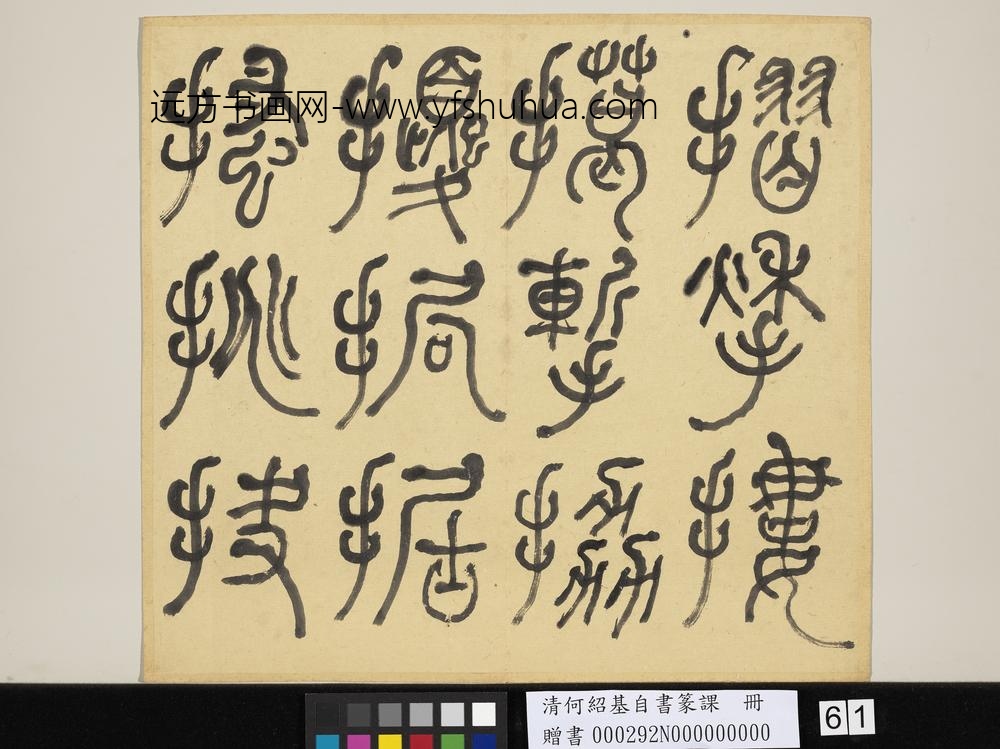 远方书画网-www.yfshuhua.com
摺揫摟
擖摲拹
擾挶据
挑抉
清何紹基自書篆課　冊
贈書 000292N000000000
61